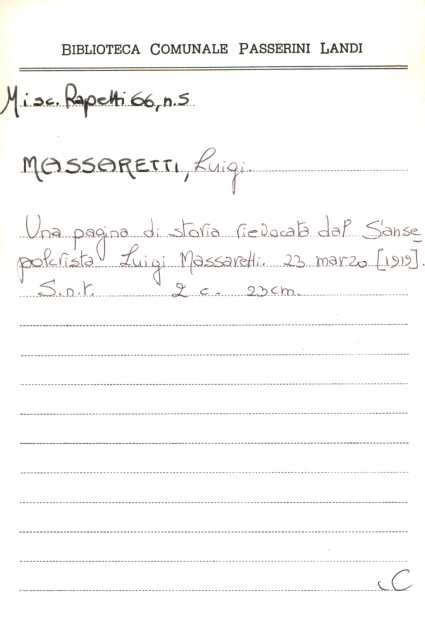 BIBLIOTECA COMUNALE PASSERINI LANDI
Misc. Rapetti 66, n.5
MASSARETTI, Luigi.
Una pagina di storia rievocata dal Sanse=
polcrista Luigi Massaretti. 23 marzo [1919].
S.n.t. 2 c. 23cm.
C